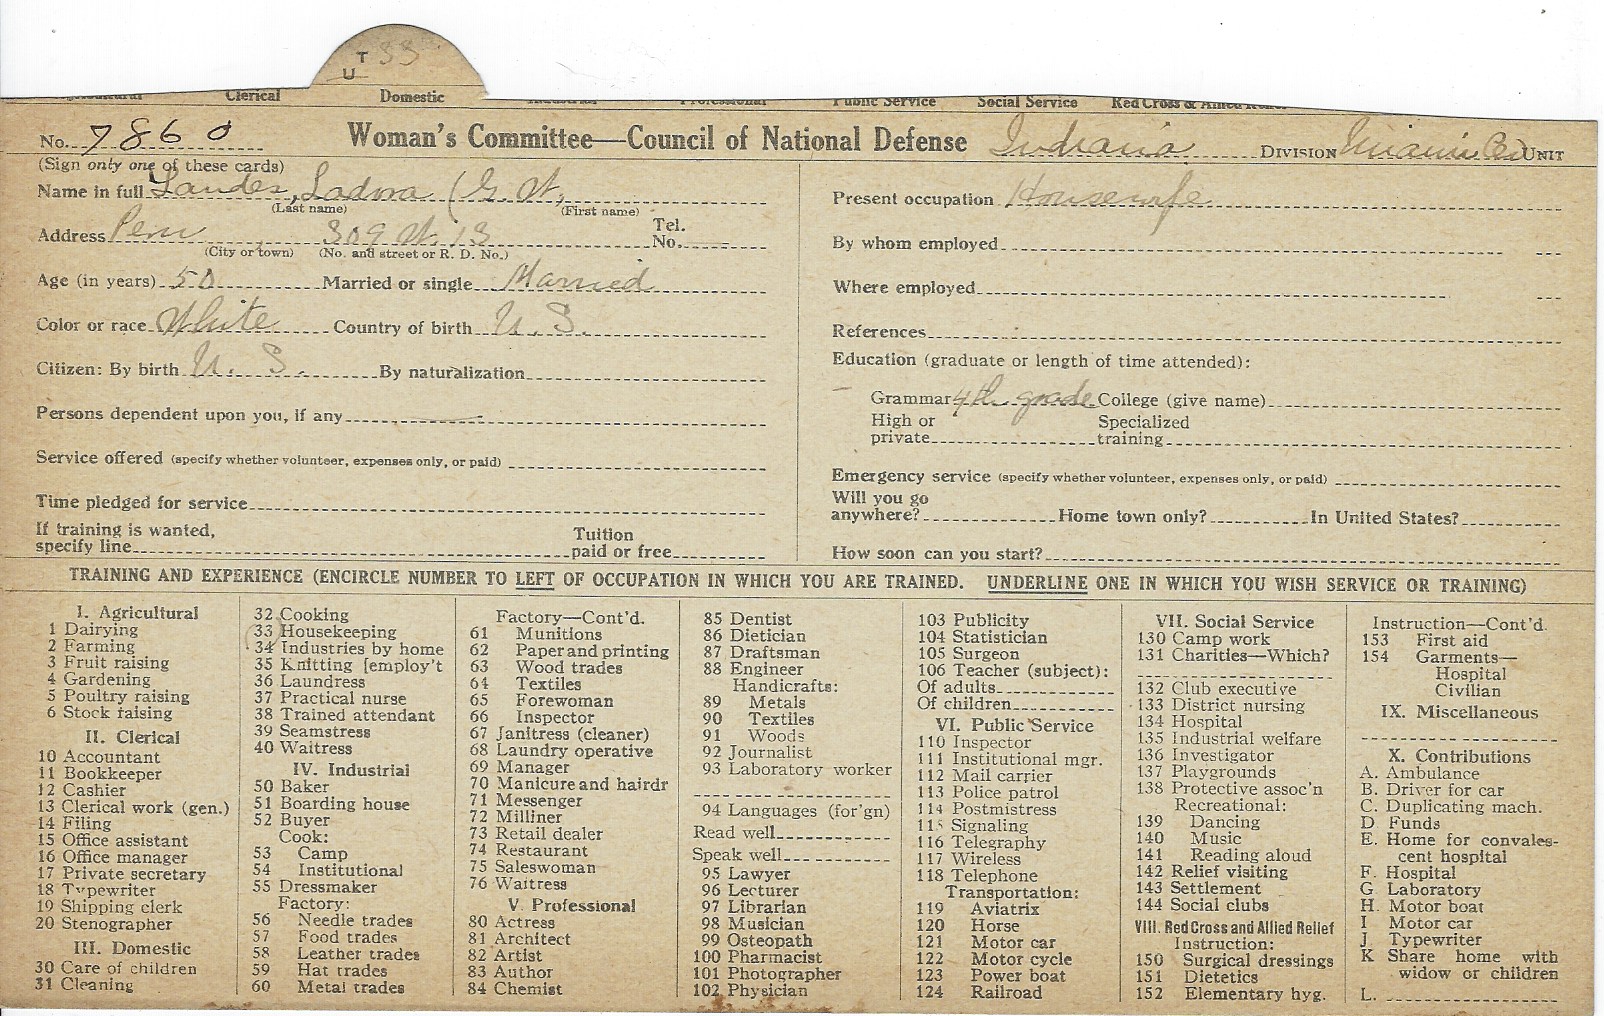 T 33
U
Clerical Domestic Industrial Professional Public Service Social Service Red Cross & Allied Relief
No. 7860 Woman's Committee—Council of National Defense Indiana DIVISION Miami Co UNIT
(Sign only one of these cards)
Name in full Landes, Ladora (G. W.
(Last name) (First name)
Address Peru 309 W. 13 Tel. No.
(City or town) (No. and street or R. D. No.)
Age (in years) 50 Married or single Married
Color or race White Country of birth U. S.
Citizen: By birth U. S. By naturalization
Persons dependent upon you, if any
Service offered (specify whether volunteer, expenses only, or paid)
Time pledged for service
If training is wanted, specify line Tuition paid or free
Present occupation Housewife
By whom employed
Where employed
References
Education (graduate or length of time attended):
Grammar 4th grade College (give name)
High or private Specialized training
Emergency service (specify whether volunteer, expenses only, or paid)
Will you go anywhere? Home town only? In United States?
How soon can you start?
TRAINING AND EXPERIENCE (ENCIRCLE NUMBER TO LEFT OF OCCUPATION IN WHICH YOU ARE TRAINED. UNDERLINE ONE IN WHICH YOU WISH SERVICE OR TRAINING)
I. Agricultural
1 Dairying
2 Farming
3 Fruit raising
4 Gardening
5 Poultry raising
6 Stock raising
II. Clerical
10 Accountant
11 Bookkeeper
12 Cashier
13 Clerical work (gen.)
14 Filing
15 Office assistant
16 Office manager
17 Private secretary
18 Typewriter
19 Shipping clerk
20 Stenographer
III. Domestic
30 Care of children
31 Cleaning
32 Cooking
33 Housekeeping
34 Industries by home
35 Knitting [employ't
36 Laundress
37 Practical nurse
38 Trained attendant
39 Seamstress
40 Waitress
IV. Industrial
50 Baker
51 Boarding house
52 Buyer
Cook:
53 Camp
54 Institutional
55 Dressmaker
Factory:
56 Needle trades
57 Food trades
58 Leather trades
59 Hat trades
60 Metal trades
Factory—Cont'd.
61 Munitions
62 Paper and printing
63 Wood trades
64 Textiles
65 Forewoman
66 Inspector
67 Janitress (cleaner)
68 Laundry operative
69 Manager
70 Manicure and hairdr
71 Messenger
72 Milliner
73 Retail dealer
74 Restaurant
75 Saleswoman
76 Waitress
V. Professional
80 Actress
81 Architect
82 Artist
83 Author
84 Chemist
85 Dentist
86 Dietician
87 Draftsman
88 Engineer
Handicrafts:
89 Metals
90 Textiles
91 Woods
92 Journalist
93 Laboratory worker
94 Languages (for'gn)
Read well
Speak well
95 Lawyer
96 Lecturer
97 Librarian
98 Musician
99 Osteopath
100 Pharmacist
101 Photographer
102 Physician
103 Publicity
104 Statistician
105 Surgeon
106 Teacher (subject):
Of adults
Of children
VI. Public Service
110 Inspector
111 Institutional mgr.
112 Mail carrier
113 Police patrol
114 Postmistress
115 Signaling
116 Telegraphy
117 Wireless
118 Telephone
Transportation:
119 Aviatrix
120 Horse
121 Motor car
122 Motor cycle
123 Power boat
124 Railroad
VII. Social Service
130 Camp work
131 Charities—Which?
132 Club executive
133 District nursing
134 Hospital
135 Industrial welfare
136 Investigator
137 Playgrounds
138 Protective assoc'n
Recreational:
139 Dancing
140 Music
141 Reading aloud
142 Relief visiting
143 Settlement
144 Social clubs
VIII. Red Cross and Allied Relief
Instruction:
150 Surgical dressings
151 Dietetics
152 Elementary hyg.
Instruction—Cont'd.
153 First aid
154 Garments—
Hospital
Civilian
IX. Miscellaneous
X. Contributions
A. Ambulance
B. Driver for car
C. Duplicating mach.
D Funds
E. Home for convales-
cent hospital
F. Hospital
G Laboratory
H. Motor boat
I Motor car
J Typewriter
K Share home with
widow or children
L.